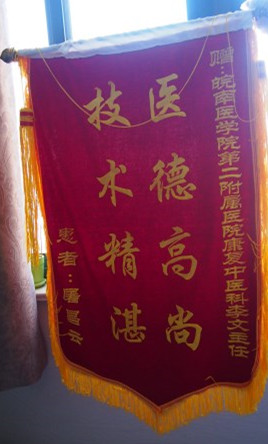 赠：皖南医学院第二附属医院康复中医科李文主任
医德高尚
技术精湛
患者：屠昌云